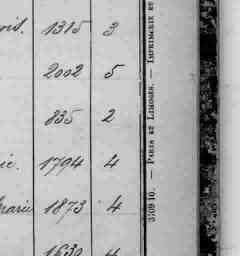 ois. 1315 3
2002 5
835 2
ie. 1794 4
Marie 1873 4
1630 4
33910. — PARIS ET LIMOGES. — IMPRIMERIE ET